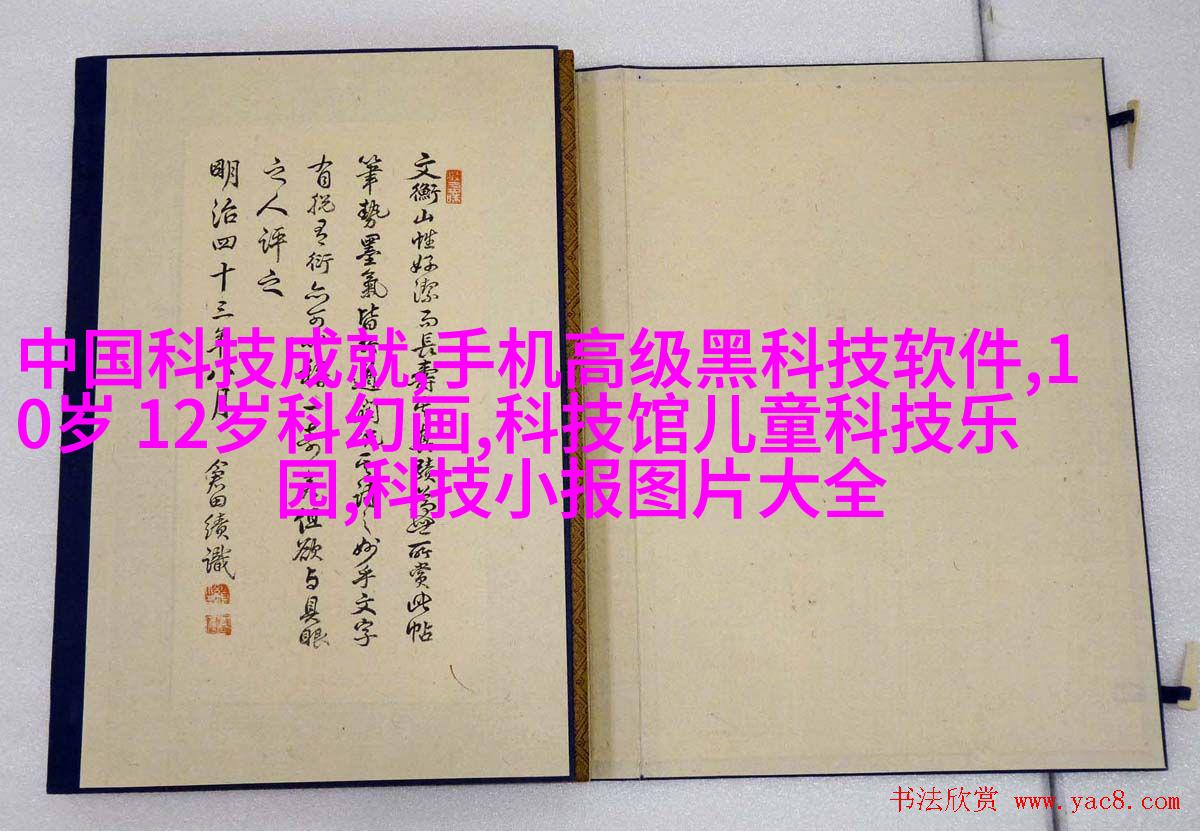 文衡山性好潔而長壽所賞此帖
筆勢墨氣皆之妙乎文字
有衍亦可但欲与具眼
之人評之
明治四十三年八月 倉田績識
中国科技成就,手机高级黑科技软件,1
0岁 12岁科幻画,科技馆儿童科技乐
园,科技小报图片大全
书法欣赏 www.yac8.com